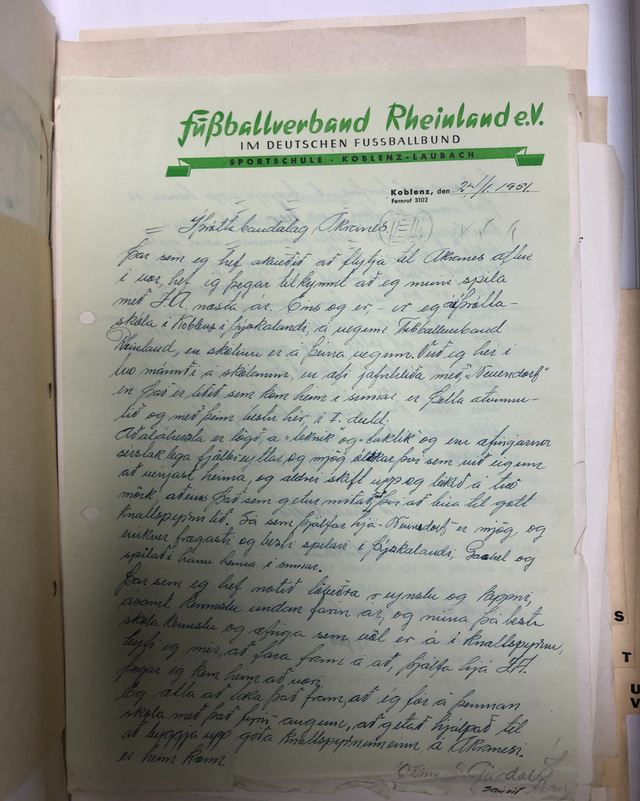 Fußballverband Rheinland e.V.
IM DEUTSCHEN FUSSBALLBUND
SPORTSCHULE · KOBLENZ-LAUBACH
Koblenz, den 24/1. 1951.
Fernruf 3102
Íþróttabandalag Akraness
Þar sem eg hef ákveðið að flytja til Akranes aftur
í vor, hef eg þegar tilkynnt að eg muni spila
með Í.A. næsta ár. Eins og er, - er eg á íþrótta-
skóla í Koblenz í Þýskalandi, á vegum Fussballverband
Rheinland, en skólinn er á þeirra vegum. Verð eg hér í
tvo mánuði á skólanum, en æfi jafnhliða með, "Neuendorf"
en það er liðið sem kom heim í sumar, er þetta atvinnu-
lið og með þeim bestu hér, í 1. deild.
Aðaláhersla er lögð, á "teknik" og "taktik" og eru æfingarnar
sérstaklega fjölbreyttar, og mjög ólíkar því sem við eigum
að venjast heima, og aldrei skift upp og leikið á tvö
mörk, aðeins það sem getur miðað því að búa til gott
knattspyrnu lið. Sá sem þjálfar hjá "Neuendorf" er mjög og
einhver frægasti og bezti spilari í Þýskalandi, og
spilaði hann heima í sumar.
Þar sem eg hef notið reynslu og keppni,
ásamt kennslu undan farin ár, og núna þá bestu
skóla kennslu og æfinga sem völ er á í knattspyrnu,
leyfi eg mér, að fara fram á að, þjálfa hjá Í.A.
þegar eg kem heim að vori.
Eg ætla að taka það fram, að ég fór á þennan
skóla með það fyrir augum, að getað hjálpað til
að byggja upp góða knattspyrnumenn, á Akranesi
er heim kæmi.
S
T
U
V